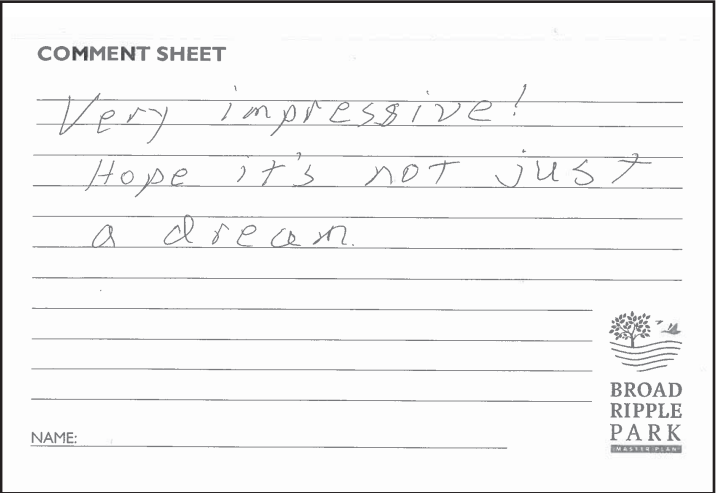 COMMENT SHEET
Very impressive!
Hope it's not just
a dream.
BROAD
RIPPLE
PARK
MASTER PLAN
NAME: